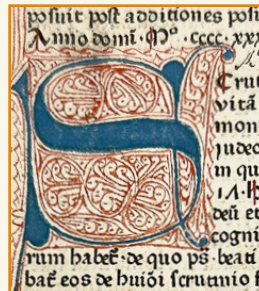 posuit post additiones posi
Anno domi. Mº. cccc. xxx
S
Crut
vitā
mon
judeo
in qu
deū et
cogni
rum habet̄. de quo ps. beati
bat̄ eos de huiōi scrutanio